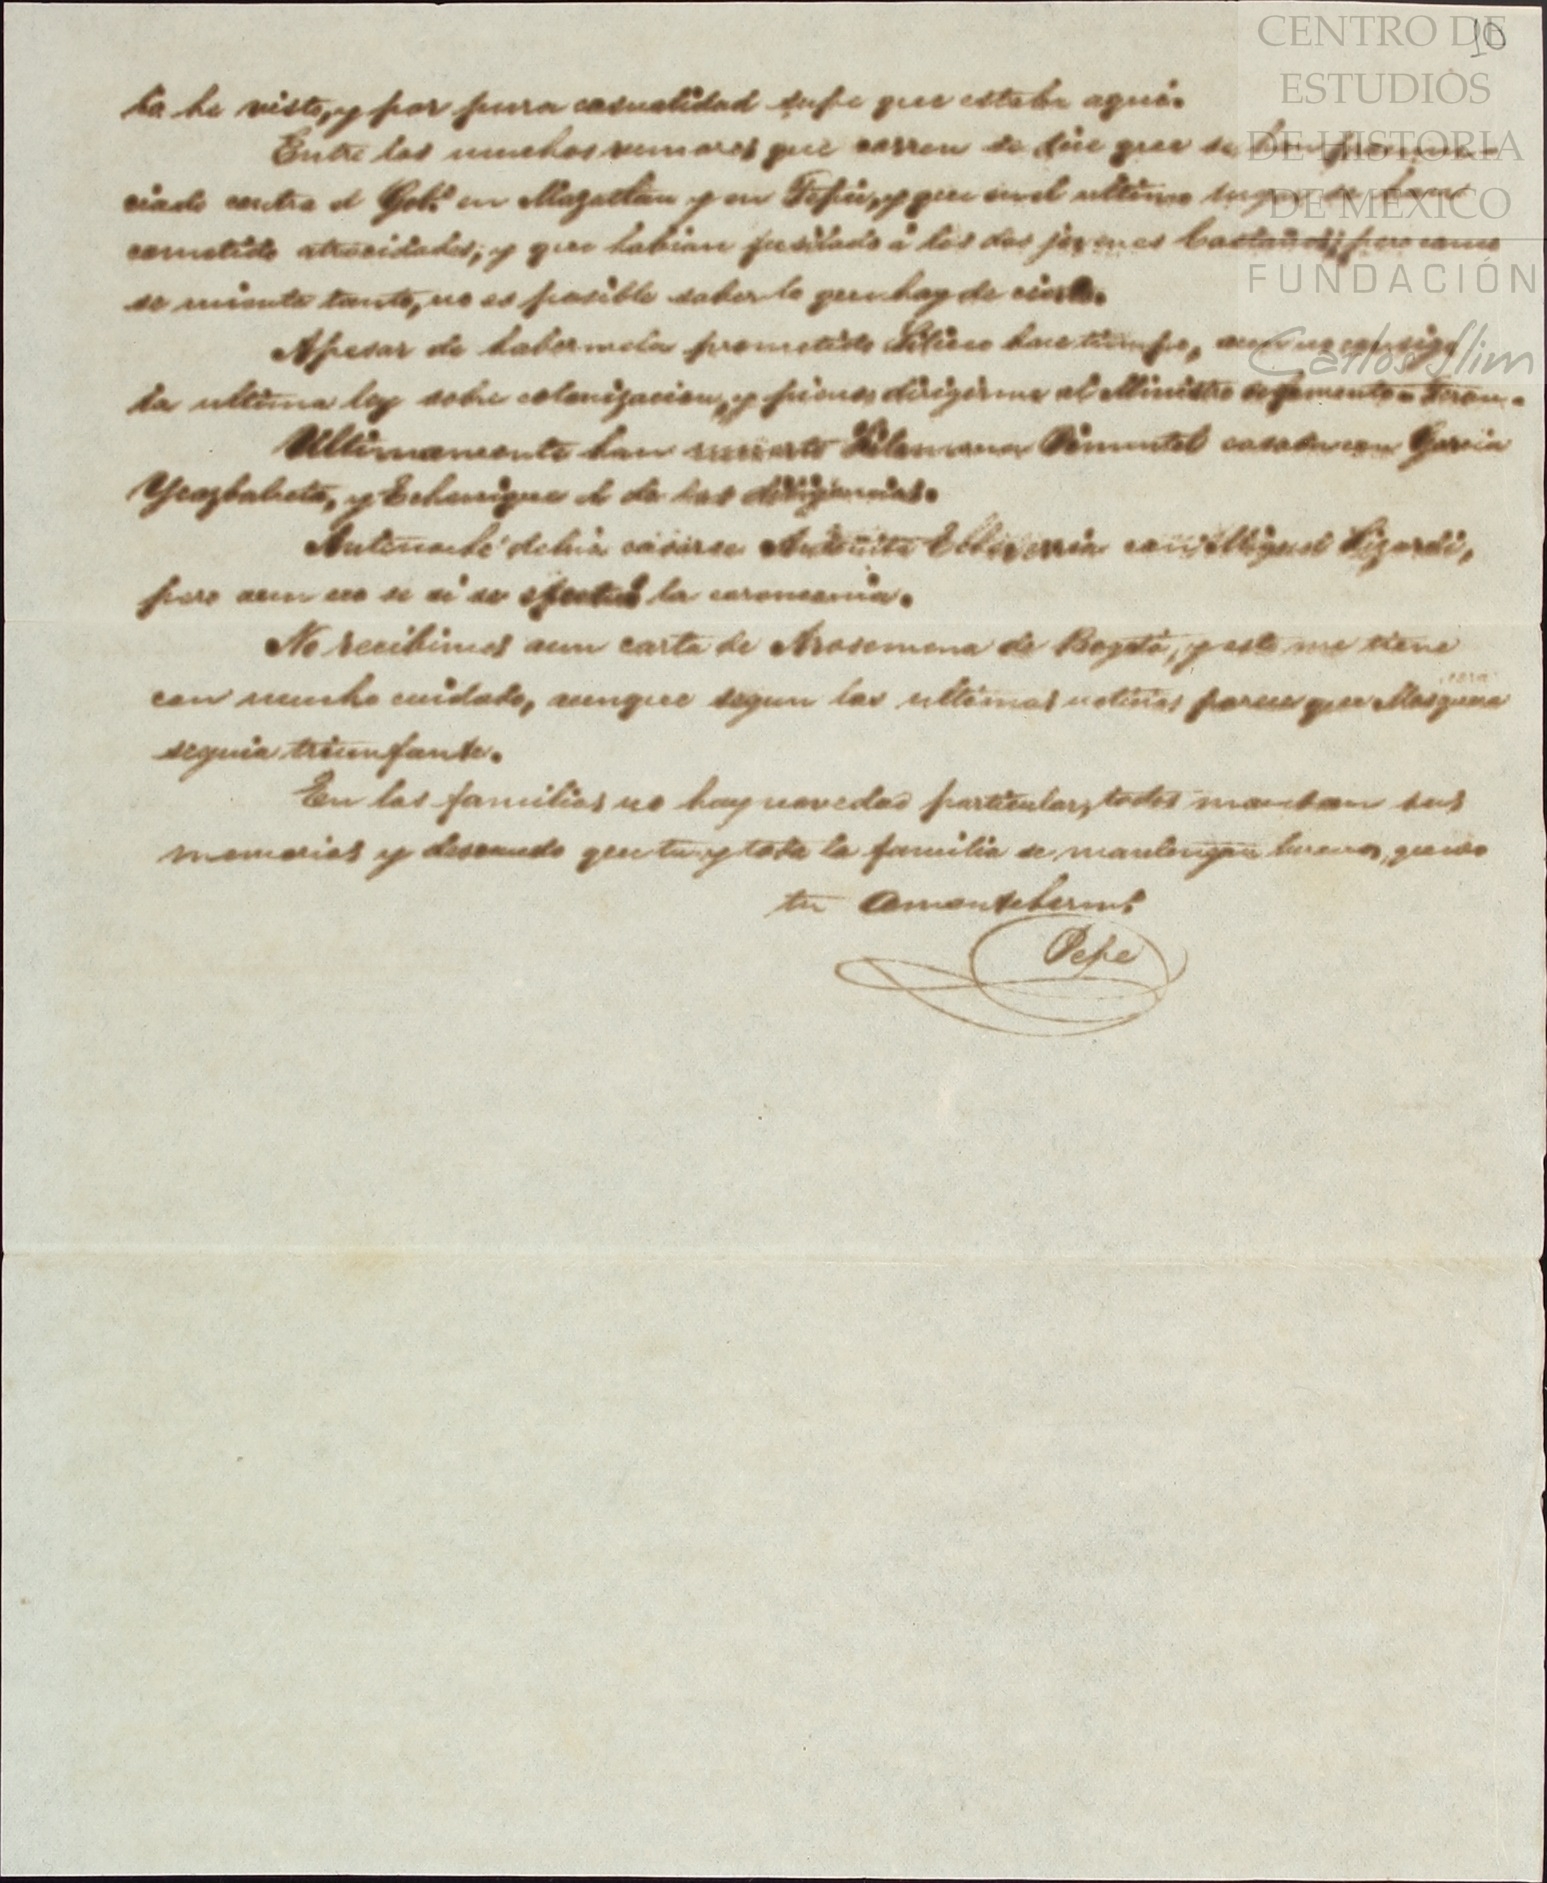 10
CENTRO DE
ESTUDIOS
DE HISTORIA
DE MÉXICO
FUNDACIÓN
Carlos Slim
la he visto, y por pura casualidad supe que estaba aqui.
Entre los muchos rumores que corren se dice que se han pronun-
ciado contra el Gob.º en Mazatlan y en Tepic, y que en el ultimo lugar se han
cometido atrocidades, y que habian fusilado á los dos jovenes Castaños; pero como
se miente tanto, no es posible saber lo que hay de cierto.
Apesar de habermela prometido Siliceo hace tiempo, aun no consigo
la ultima ley sobre colonizacion, y pienso dirigirme al Ministro de fomento Teran.
Ultimamente han muerto Filomena Pimentel casada con Garcia
Ycazbalceta, y Echenique el de las diligencias.
Antenoche debia casarse Antoñita Echeverria con Miguel Lizardi,
pero aun no se si se efectuó la ceremonia.
No recibimos aun carta de Arosemena de Bogotá, y esto me tiene
con mucho cuidado, aunque segun las ultimas noticias parece que Mosquera
seguia triunfante.
En las familias no hay novedad particular, todos mandan sus
memorias y deseando que tu y toda la familia se mantengan buenos, quedo
tu amante herm.º
Pepe